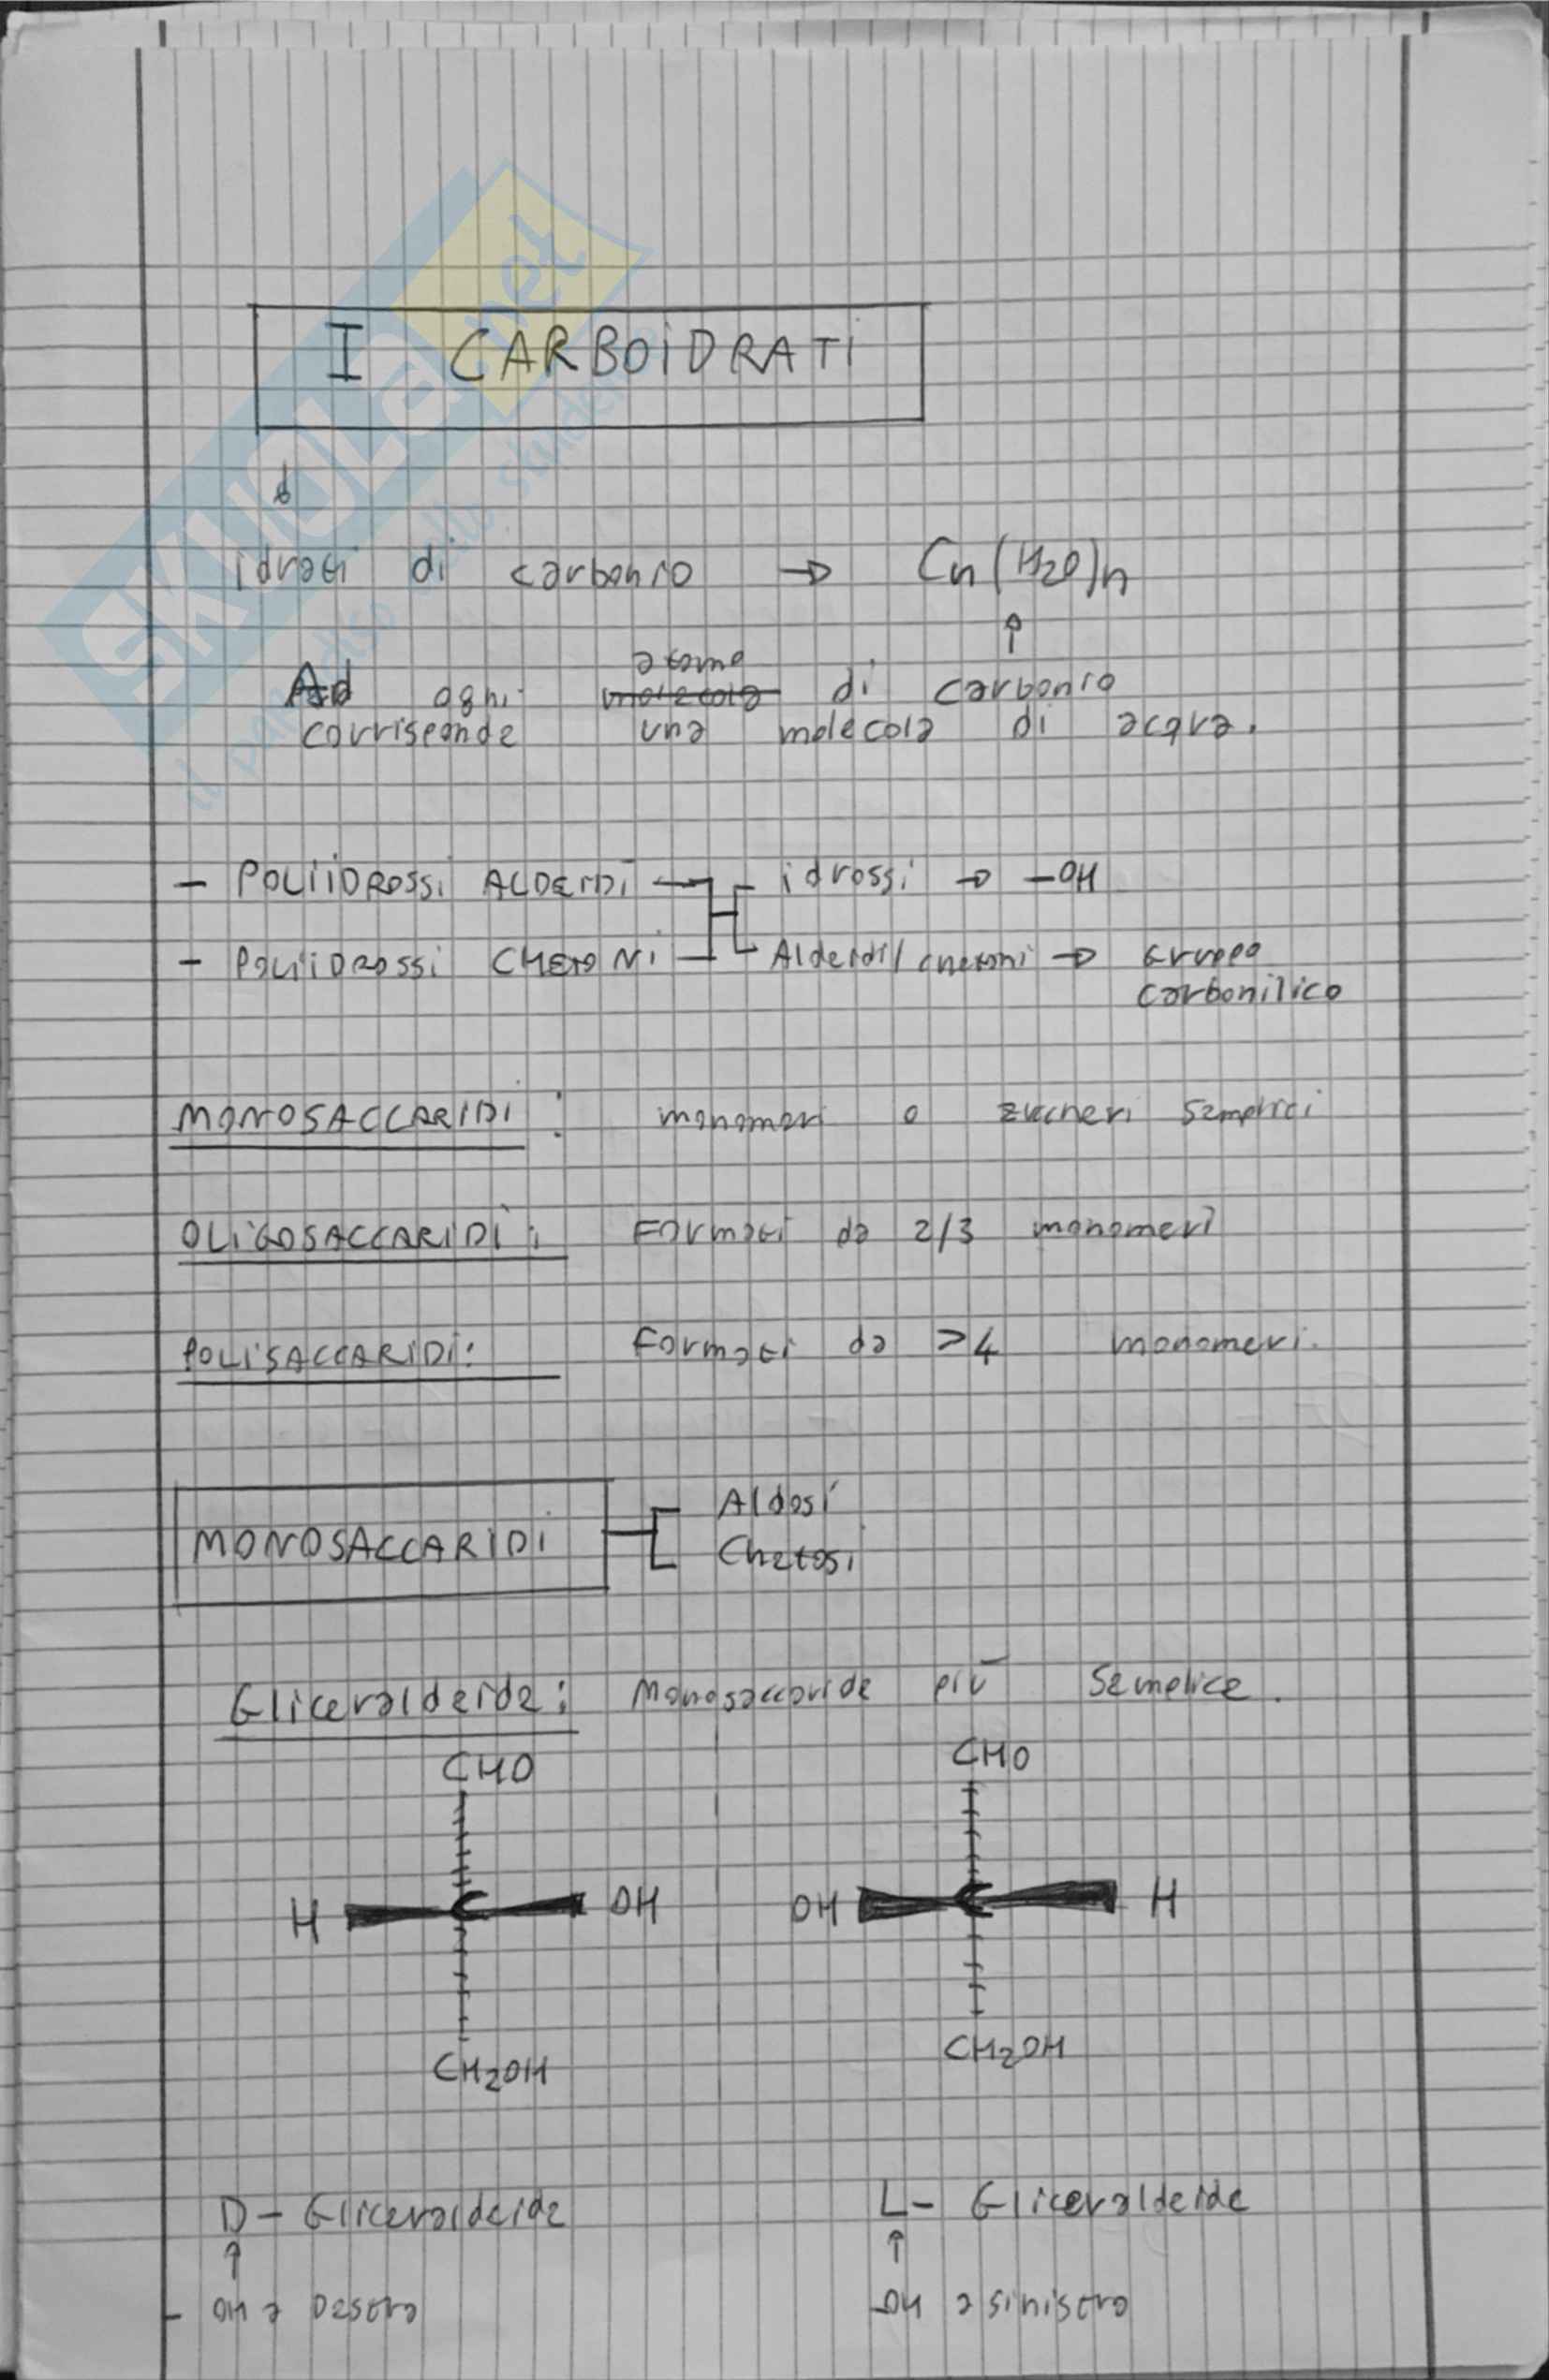 I CARBOIDRATI
idrati di carbonio → Cn(H2O)n
Ad ogni atomo di carbonio
molecola
corrisponde una molecola di acqua.
- POLIIDROSSI ALDEIDI
idrossi → -OH
- POLIIDROSSI CHETONI
Aldeidi/chetoni → Gruppo
carbonilico
MONOSACCARIDI: monomeri o zuccheri semplici
OLIGOSACCARIDI: Formati da 2/3 monomeri
POLISACCARIDI: Formati da >4 monomeri.
MONOSACCARIDI
Aldosi
Chetosi
Gliceraldeide: Monosaccaride più semplice.
CHO
CHO
H C OH
OH C H
CH2OH
CH2OH
D- Gliceraldeide
L- Gliceraldeide
- OH a Destra
-OH a sinistra
SKUOLA.net
il paradiso dello studente